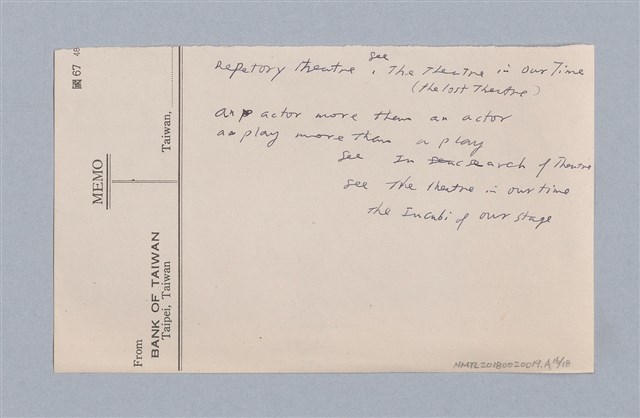 國 67 48
MEMO
Taiwan,
From
BANK OF TAIWAN
Taipei, Taiwan
Repetory theatre, see The Theatre in Our Time
(the lost Theatre)
an actor more them an actor
a play more than a play
See In search of Theatre
see The theatre in our time
the Incubi of our stage
NMTL20180020019.A